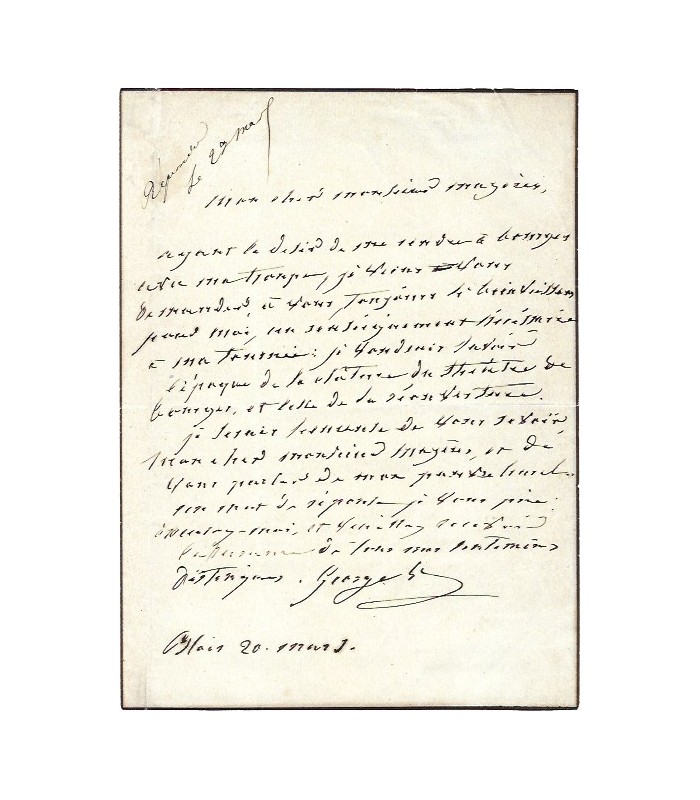 Répondu
le 29 mars
Mon cher monsieur mazères,
ayant le désir de me rendre à bourges
avec ma troupe, je viens vous
demander, à vous, toujours si bienveillant
pour moi, un renseignement nécessaire
à ma tournée: je voudrais savoir
l'époque de la clôture du théâtre de
bourges, et celle de la réouverture.
je serais heureuse de vous revoir,
mon cher monsieur Mazères, et de
vous parler de mon pauvre harel.
un mot de réponse je vous prie.
excusez-moi, et veuillez recevoir
l'assurance de tous mes sentimens
distingués. George
Blois 20. mars.